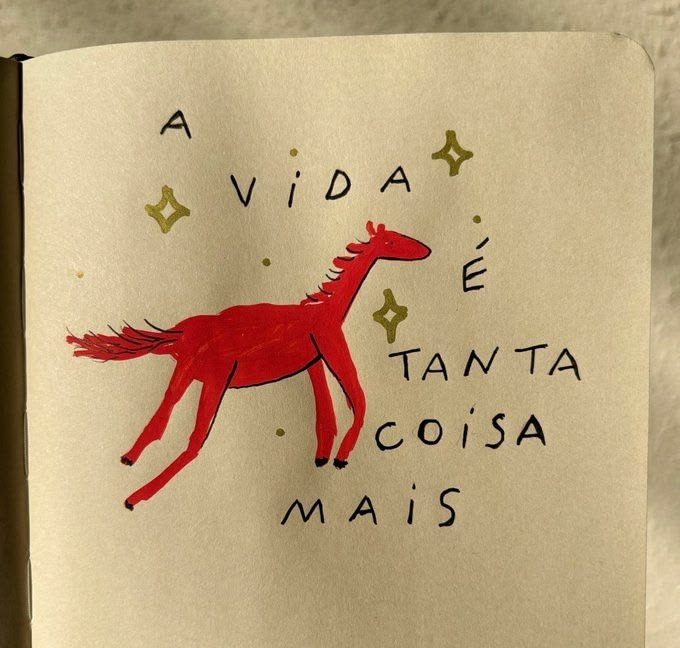 A
VIDA
É
TANTA
COISA
MAIS